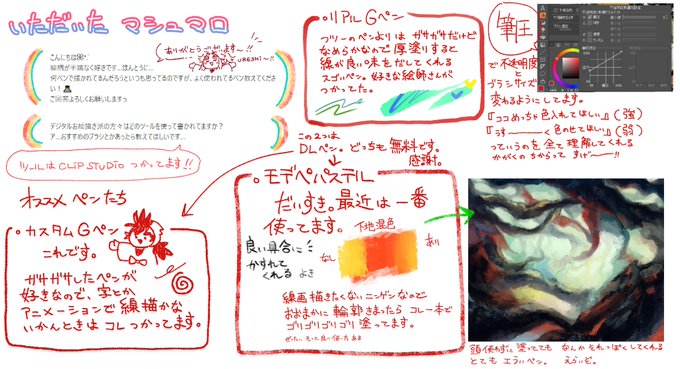 いただいた マシュマロ
ありがとうございますー!!
URESHI〜!!
こんにちは
絵柄が半端なく好きです…ほんとうに…
何ペンで描かれてるんだろうといつも思ってるのですが、よく使われてるペン教えてください!
ご回答よろしくお願いしますっ
デジタルお絵描き派の方々はどのツールを使って書かれてますか?
ア…おすすめのブラシとかあったら教えてほしいです…
ツールは CLIP STUDIO つかってます!!
オススメ ペンたち
この2つは
DLペン。どっちも無料です。
感謝。
・カスタムGペン
これです。
ガサガサしたペンが
好きなので、字とか
アニメーションで線描かな
いかんときはコレつかってます。
・リアルGペン
フツーのペンよりは ガサガサだけど
なめらかなので厚塗りすると
線が良い味をだしてくれる
スゴいペン。好きな絵師さんが
つかってた。
筆圧
で不透明度
と
ブラシサイズ
変わるようにしてます。
『ココめっちゃ色入れてほしい』(強)
『うすーーく 色のせてほしい』(弱)
っていうのを全て理解してくれる
かがくのちからって すげーーー!!
・モデペパステル
だいすき。最近は一番
使ってます。
下地混色
なし
あり
良い具合に
かすれて
くれる
よき
線画描きたくないニンゲンなので
おおまかに輪郭きまったら コレ一本で
ゴリゴリゴリゴリ塗ってます。
頭使わずに塗ってても なんかそれっぽくしてくれる
とても エライペン。 えらいぞ。